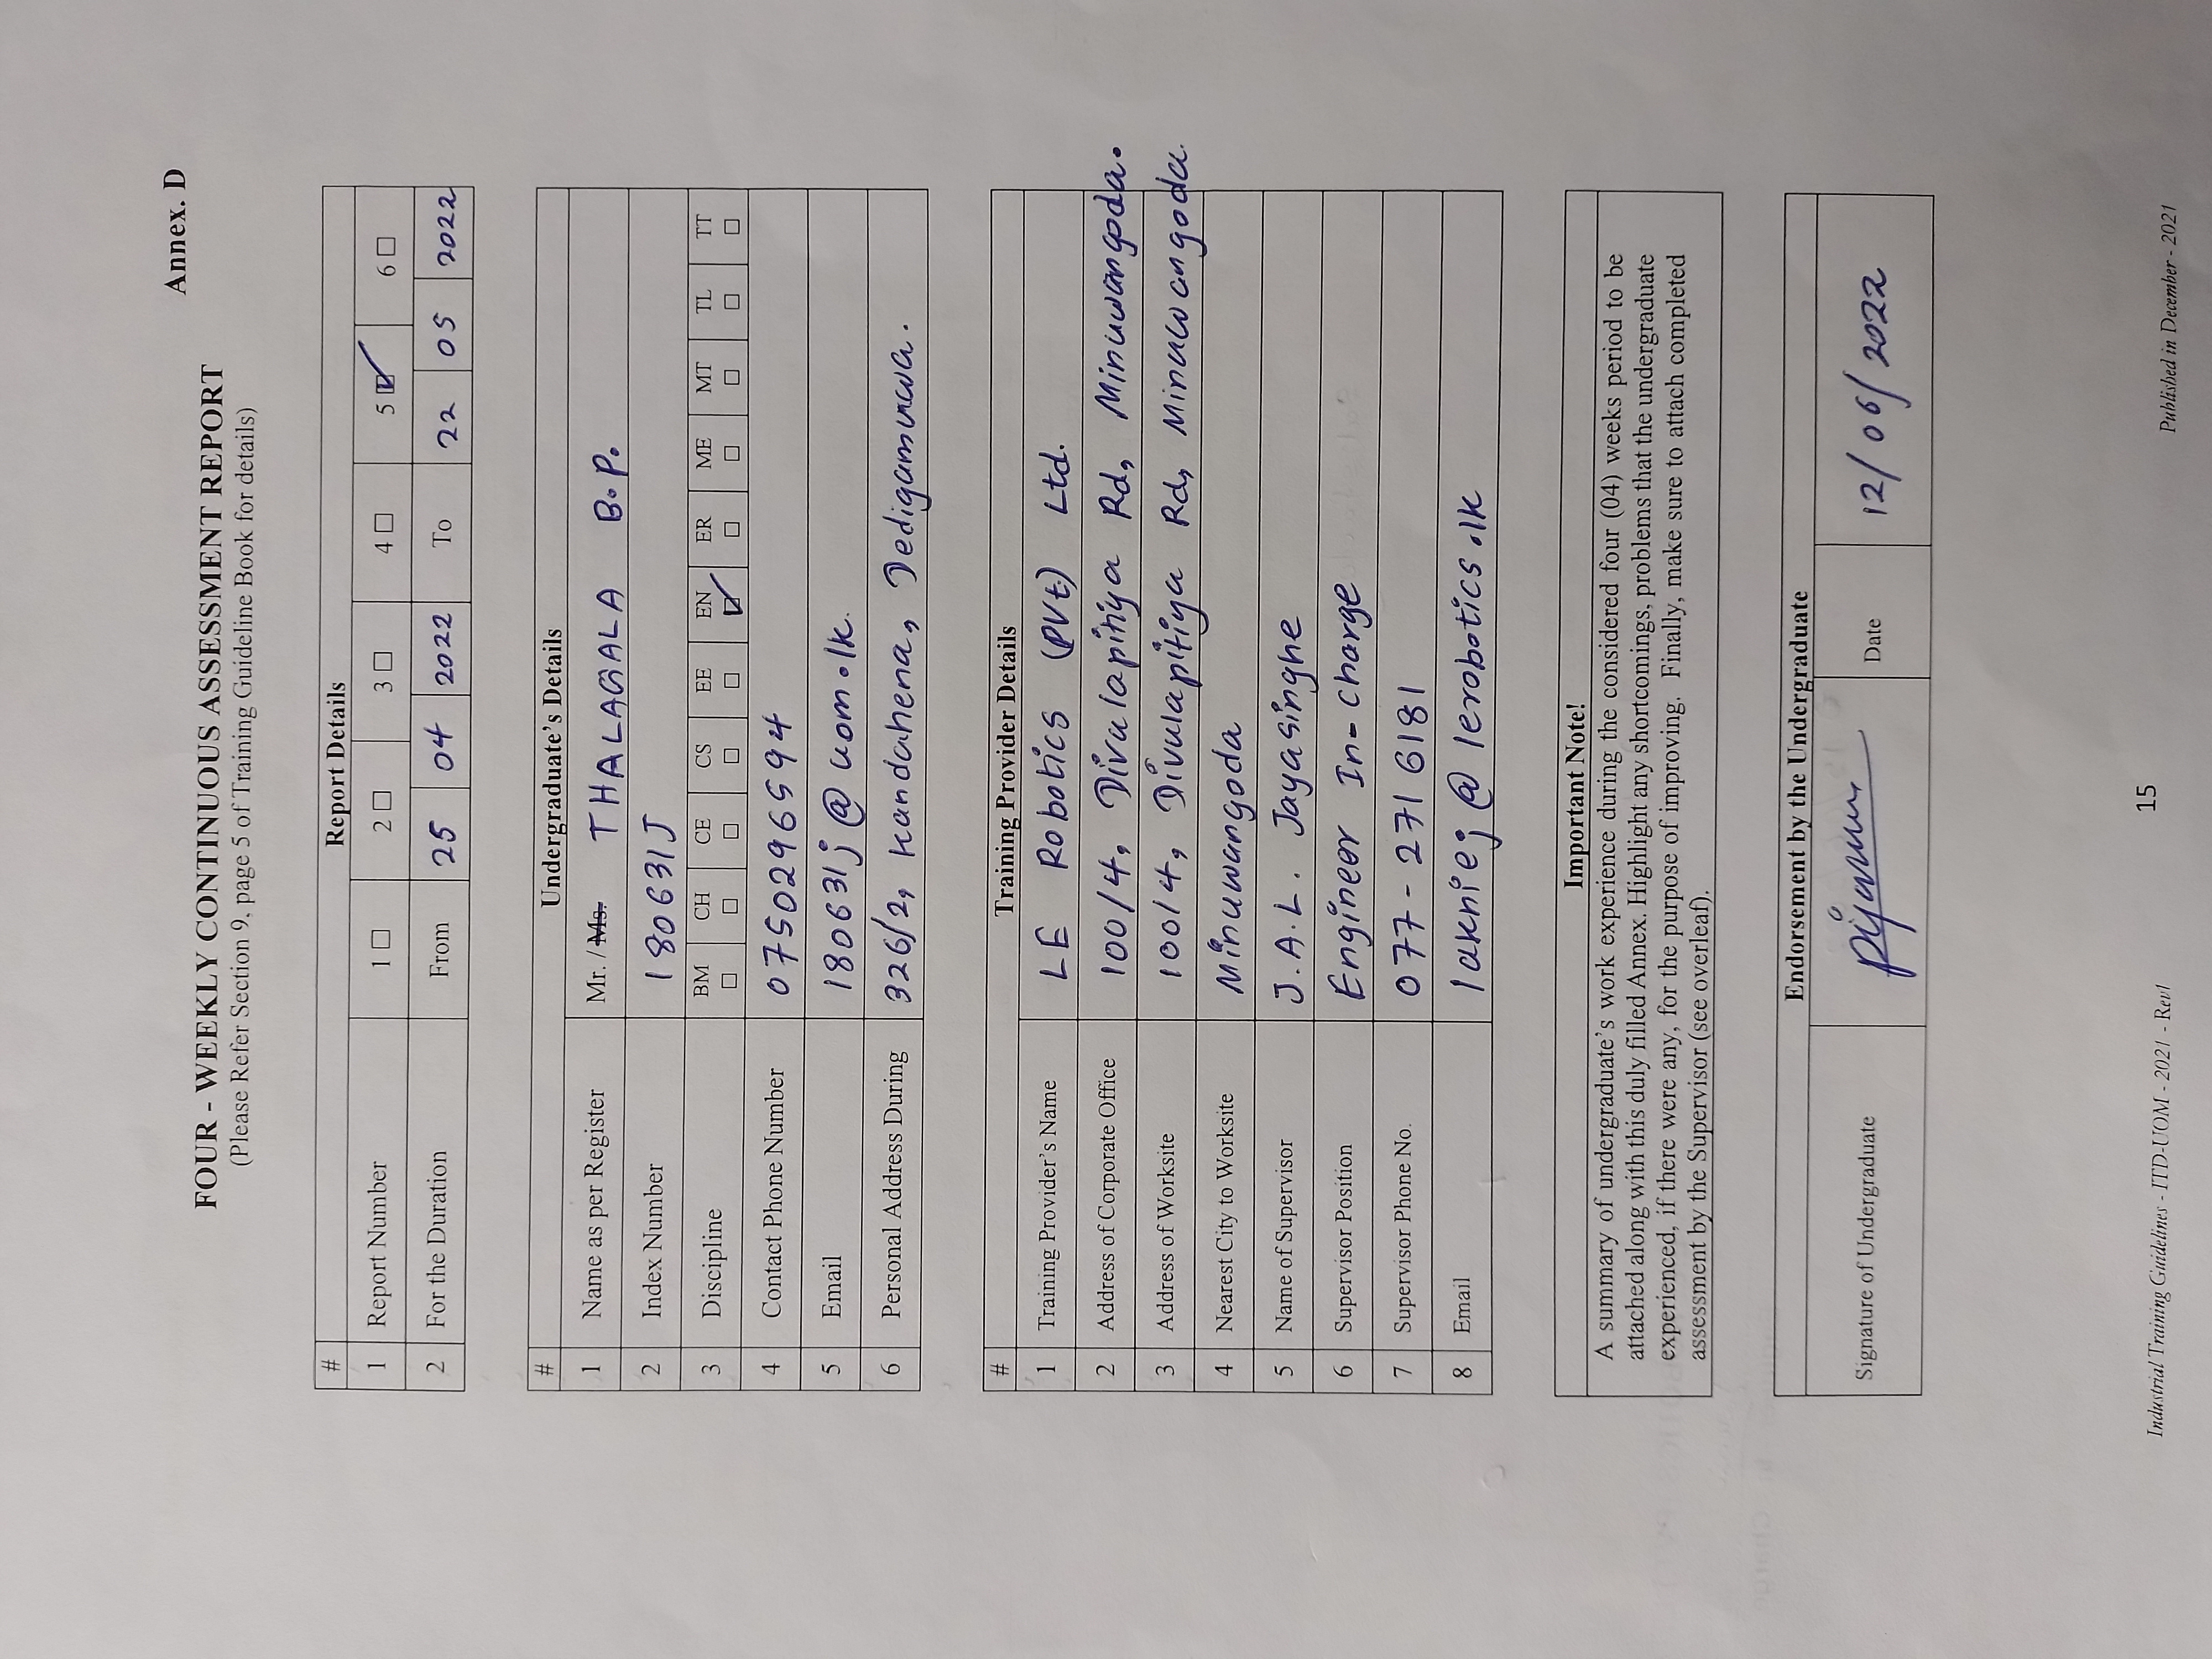 Annex. D
FOUR - WEEKLY CONTINUOUS ASSESSMENT REPORT
(Please Refer Section 9, page 5 of Training Guideline Book for details)
# Report Details
1 Report Number 1 ☐ 2 ☐ 3 ☐ 4 ☐ 5 ☑ 6 ☐
2 For the Duration From 25 04 2022 To 22 05 2022
# Undergraduate's Details
1 Name as per Register Mr. / Ms. THALAGALA B.P.
2 Index Number 180631J
3 Discipline BM ☐ CH ☐ CE ☐ CS ☐ EE ☐ EN ☑ ER ☐ ME ☐ MT ☐ TL ☐ TT ☐
4 Contact Phone Number 0750296594
5 Email 180631j@uom.lk.
6 Personal Address During 326/2, Kandahena, Dedigamuwa.
# Training Provider Details
1 Training Provider's Name LE Robotics (Pvt) Ltd.
2 Address of Corporate Office 100/4, Divulapitiya Rd, Minuwangoda.
3 Address of Worksite 100/4, Divulapitiya Rd, Minuwangoda.
4 Nearest City to Worksite Minuwangoda
5 Name of Supervisor J.A.L. Jayasinghe
6 Supervisor Position Engineer In-Charge
7 Supervisor Phone No. 077-271 6181
8 Email lakniej@lerobotics.lk
Important Note!
A summary of undergraduate's work experience during the considered four (04) weeks period to be
attached along with this duly filled Annex. Highlight any shortcomings, problems that the undergraduate
experienced, if there were any, for the purpose of improving. Finally, make sure to attach completed
assessment by the Supervisor (see overleaf).
Endorsement by the Undergraduate
Signature of Undergraduate Date 12/06/2022
15
Industrial Training Guidelines - ITD-UOM - 2021 - Rev1
Published in December - 2021